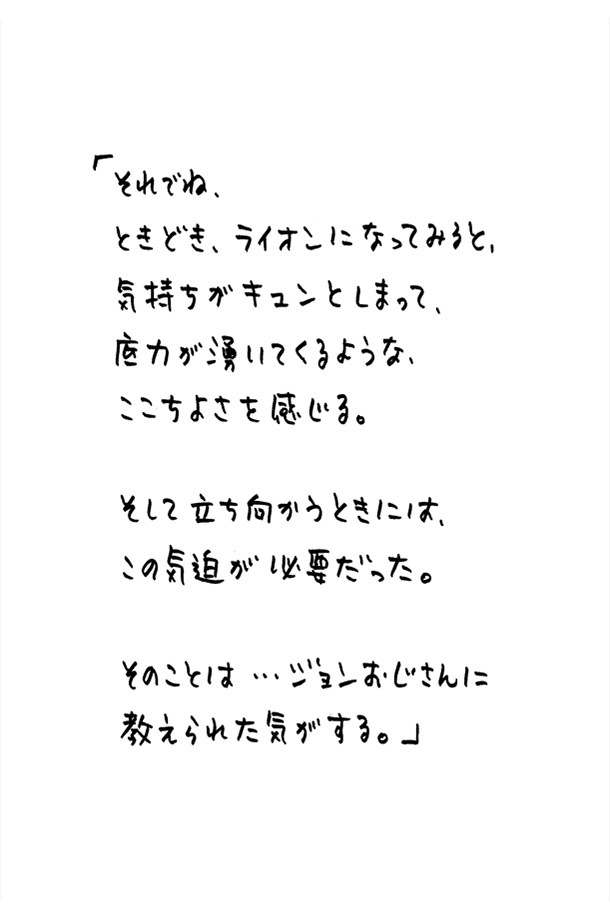 「それでね、
ときどき、ライオンになってみると、
気持ちがキュンとしまって、
底力が湧いてくるような、
ここちよさを感じる。
そして立ち向かうときには、
この気迫が必要だった。
そのことは…ジョンおじさんに
教えられた気がする。」